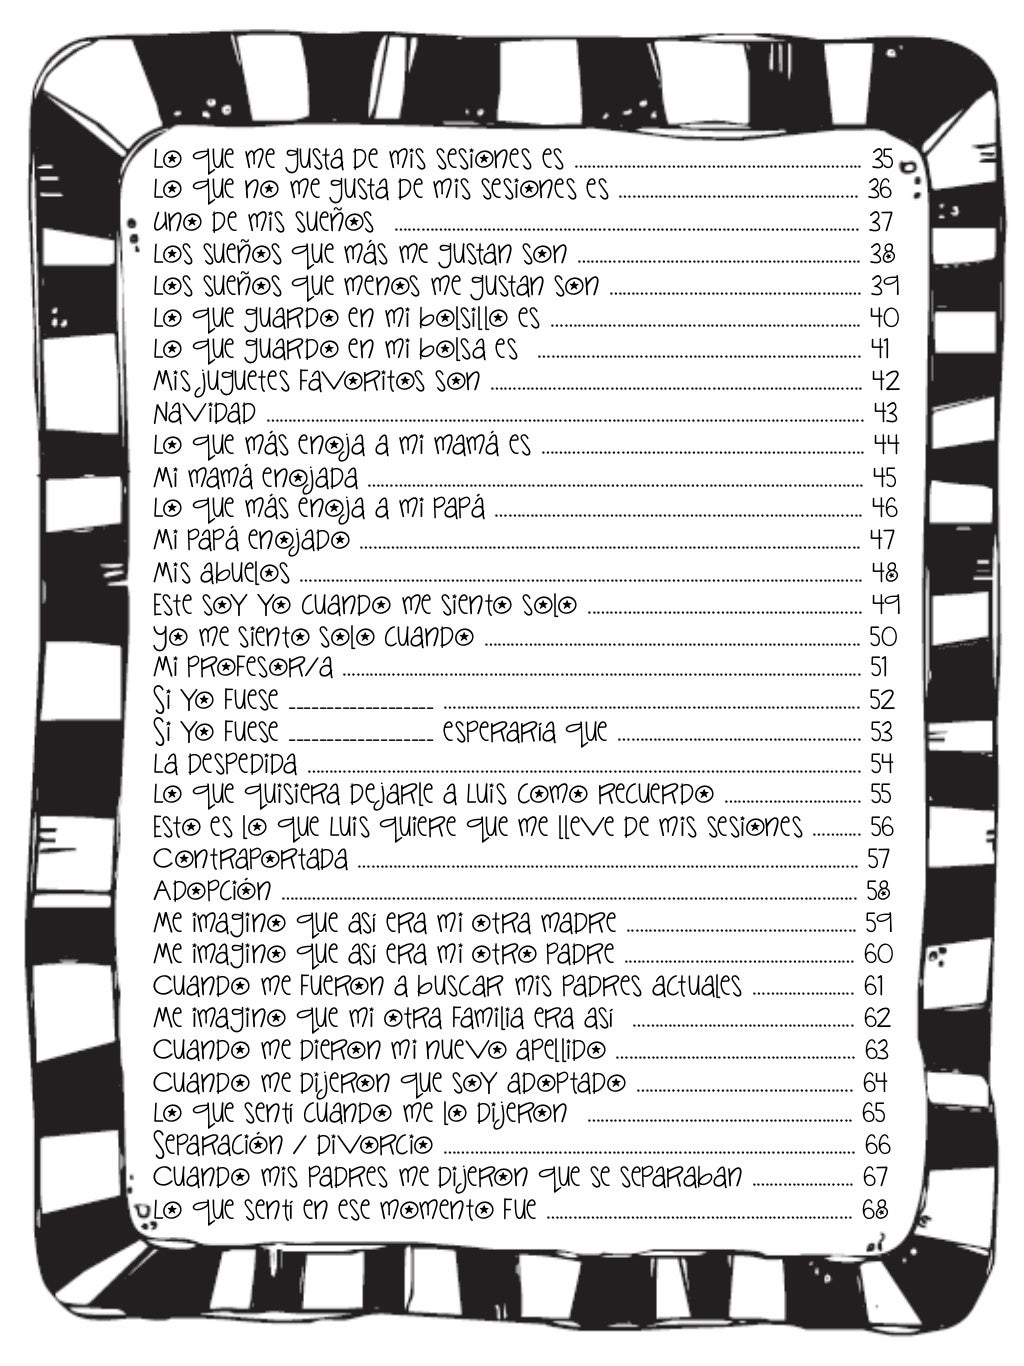 Lo que me gusta de mis sesiones es ........ 35
Lo que no me gusta de mis sesiones es ........ 36
Uno de mis sueños ........ 37
Los sueños que más me gustan son ........ 38
Los sueños que menos me gustan son ........ 39
Lo que guardo en mi bolsillo es ........ 40
Lo que guardo en mi bolsa es ........ 41
Mis juguetes favoritos son ........ 42
Navidad ........ 43
Lo que más enoja a mi mamá es ........ 44
Mi mamá enojada ........ 45
Lo que más enoja a mi papá ........ 46
Mi papá enojado ........ 47
Mis abuelos ........ 48
Este soy yo cuando me siento solo ........ 49
Yo me siento solo cuando ........ 50
Mi profesor/a ........ 51
Si yo fuese ___________________ ........ 52
Si yo fuese ___________________ esperaría que ........ 53
La despedida ........ 54
Lo que quisiera dejarle a Luis como recuerdo ........ 55
Esto es lo que Luis quiere que me lleve de mis sesiones ........ 56
Contraportada ........ 57
Adopción ........ 58
Me imagino que así era mi otra madre ........ 59
Me imagino que así era mi otro padre ........ 60
Cuando me fueron a buscar mis padres actuales ........ 61
Me imagino que mi otra familia era así ........ 62
Cuando me dieron mi nuevo apellido ........ 63
Cuando me dijeron que soy adoptado ........ 64
Lo que sentí cuando me lo dijeron ........ 65
Separación / Divorcio ........ 66
Cuando mis padres me dijeron que se separaban ........ 67
Lo que sentí en ese momento fue ........ 68